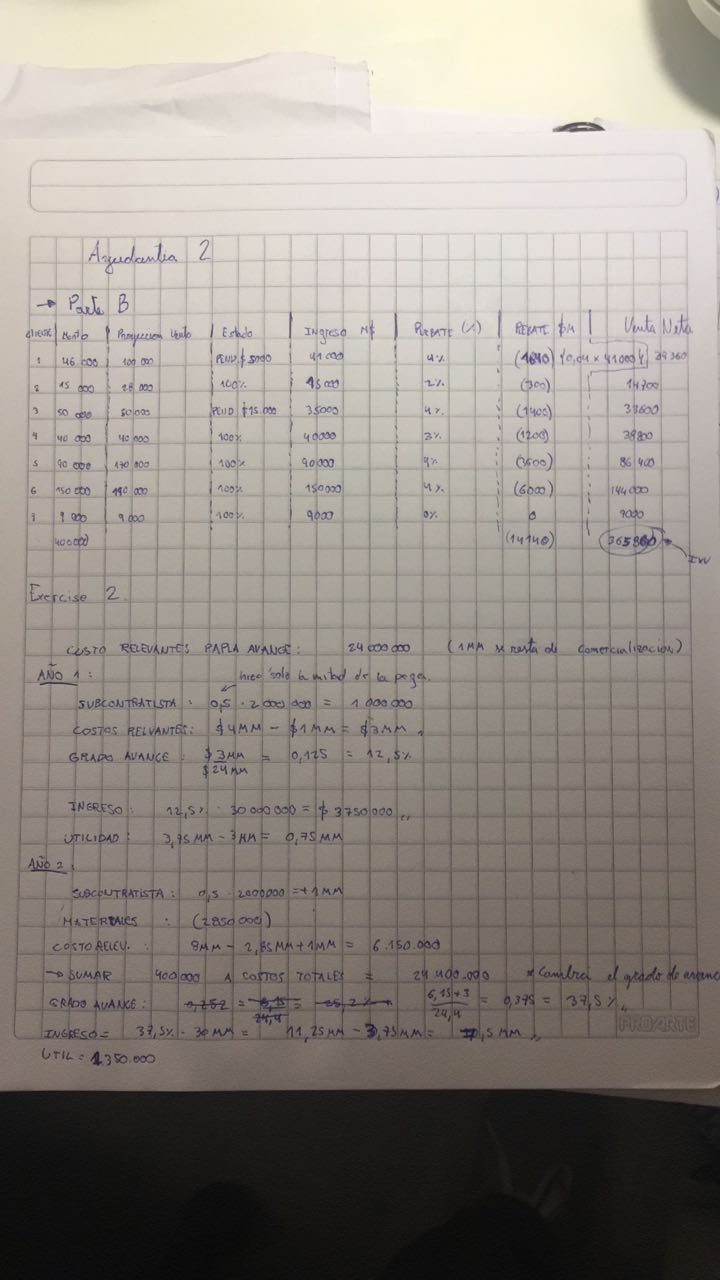 Ayudantia 2
→ Parte B
CLIENTE | Monto | Proyeccion Vento | Estado | INGRESO M$ | REBATE (%) | REBATE $M | Venta Neta
1 46.000 100 000 PEND $5000 41000 4% (1640) {0,04 x 41000} 39360
2 15 000 28 000 100% 15000 2% (300) 14700
3 50 000 80000 PEND $15.000 35000 4% (1400) 33600
4 40 000 40 000 100% 40000 3% (1200) 38800
5 90 000 170 000 100% 90000 4% (3600) 86 400
6 150000 190 000 100% 150000 4% (6000) 144000
7 9 000 9 000 100% 9000 0% 0 9000
400000 (14140) 365860
Exercise 2.
COSTO RELEVANTES PAPLA AVANCE: 24 000 000 (1MM se resta de comercialización)
AÑO 1: hizo solo la mitad de la pega.
SUBCONTRATISTA: 0,5 · 2 000 000 = 1 000 000
COSTOS RELVANTES: $4MM - $1MM = $3MM
GRADO AVANCE: $3MM / $24MM = 0,125 = 12,5%
INGRESO: 12,5% · 30000000 = $ 3750000
UTILIDAD: 3,75 MM - 3MM = 0,75MM
AÑO 2:
SUBCONTRATISTA: 0,5 · 2000000 = +1MM
MATERIALES: (2850 000)
COSTO RELEV.: 8MM - 2,85MM + 1MM = 6.150.000
→ SUMAR 400.000 A COSTOS TOTALES = 24 400.000 * Cambia el grado de avance
GRADO AVANCE: 0,252 = 6,15 / 24,4 = 25,2% 6,15+3 / 24,4 = 0,375 = 37,5%
INGRESO = 37,5% · 30MM = 11,25MM - 3,75MM = 7,5 MM
UTIL = 1350.000
PROARTE